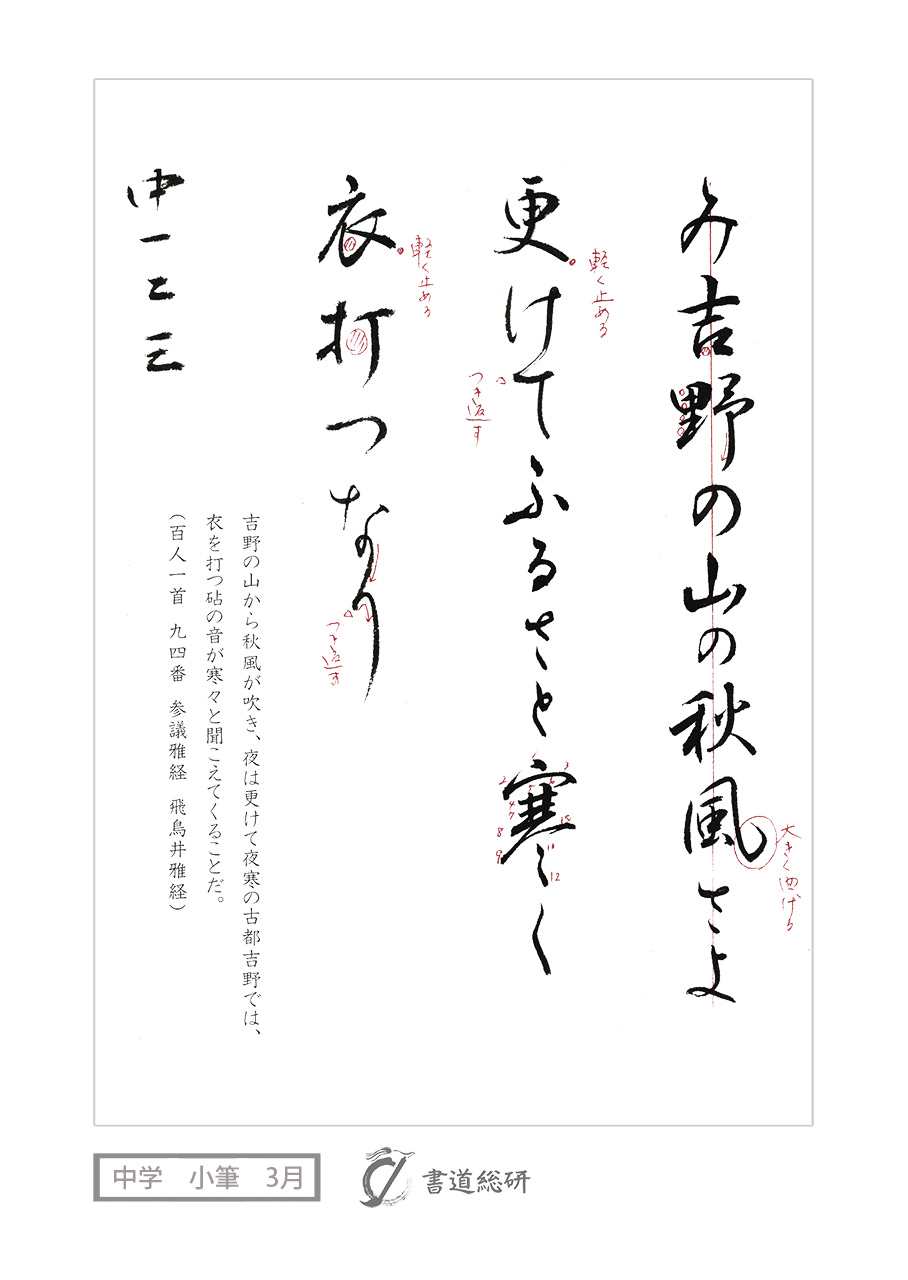 み吉野の山の秋風さよ
大きく曲げる
更けてふるさと寒く
軽く止める
つき返す
2 3 4 5 6 7 8 9 10 11 12
衣打つなり
軽く止める
つき返す
吉野の山から秋風が吹き、夜は更けて夜寒の古都吉野では、
衣を打つ砧の音が寒々と聞こえてくることだ。
(百人一首 九四番 参議雅経 飛鳥井雅経)
中一二三
中学 小筆 3月
書道総研